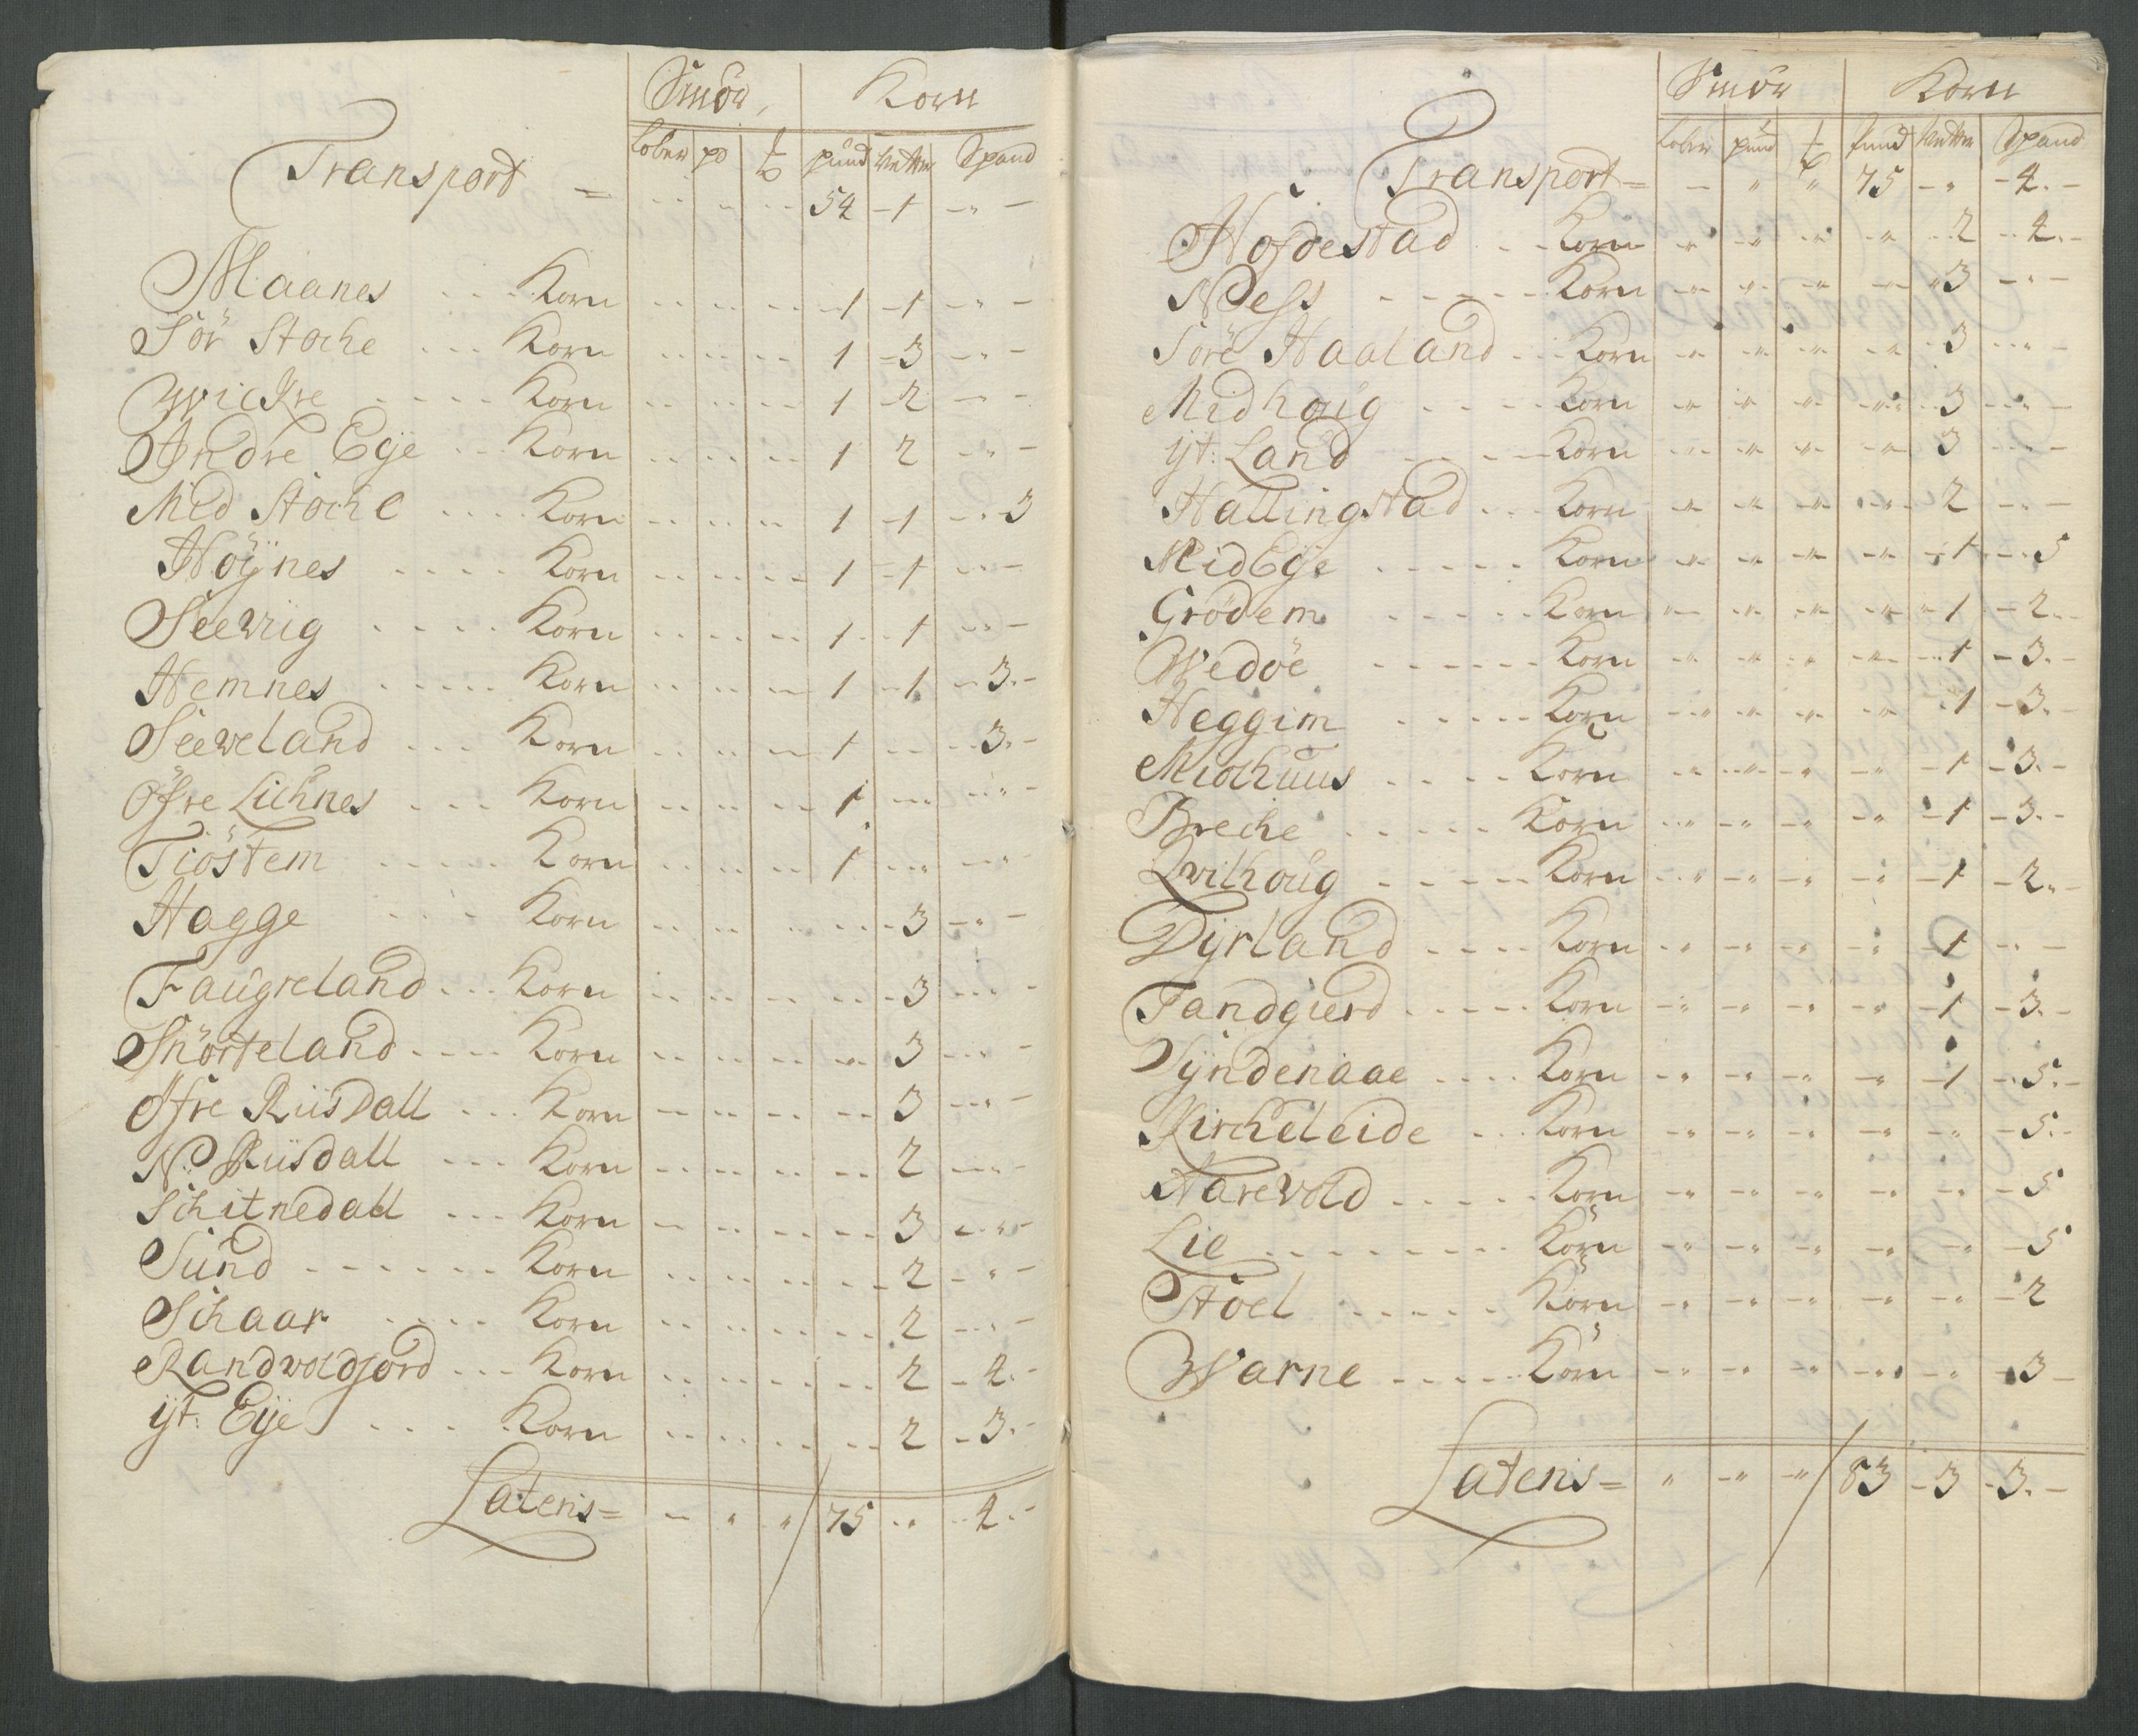 Smör, Korn
Transport = Löber pd ℔ pund Vetter Spand
54 - 1 - " -
Maanes ... Korn 1 - 1 - " -
Sör Stoche ... Korn 1 - 3 - " -
Wickre .... Korn 1 - 2 - " -
Indre Eije .. Korn 1 2 - " -
Mid Stoche .... Korn 1 - 1 - . 3
Höÿnes .... Korn 1 - 1 - " -
Seevig .... Korn 1 - 1 - " -
Nemnes ..... Korn 1 - 1 - 3. -
Seeveland ... Korn 1 - - 3. -
Öfre Lichnes ... Korn 1 - " - " -
Tiöstem ..... Korn 1 - " - " -
Hagge ... Korn 3 - " -
Faugreland ... Korn 3 - " -
Snörteland .... Korn 3 - " -
Öfre Riisdall ... Korn 3 - " -
N: Riisdall ... Korn 2 - " -
Schitnedall ... Korn 3 - " -
Sund ...... Korn 2 - " -
Schaar .... Korn 2 - " -
Randvoldgjord ... Korn 2 - 4. -
ÿt: Eÿe ... Korn 2 - 3. -
Latens = - " " / 75 - " - 4. -
Smör Korn
Löber pund ℔ pund Vetter Spand
Transport = - " " 75 - " - 4. -
Hofdestad .. Korn - " - " - " - " 2 - 4. -
Ness ..... Korn - " - " - " - " 3 - " -
Söre Haaland ... Korn - " - " - " - " 3 - " -
Midhoug .... Korn - " - " - " - " 3 - " -
ÿt: Land .... Korn - " - " - " - " 3 - " -
Hallingstad ... Korn - " - " - " - " 2 - " -
Mid Eÿe ..... Korn - " - " - " - " 1 - 5
Grödem ..... Korn - " - " - " - " 1 - 2. -
Wedöe ...... Korn - " - " - " - " 1 - 3. -
Heggim ..... Korn - " - " - " - " 1 - 3. -
Miochuus .... Korn - " - " - " - " 1 - 3. -
Breche ..... Korn - " - " - " - " 1 - 3. -
Qvilhoug ..... Korn - " - " - " - " 1 - 2. -
Dÿrland .... Korn - " - " - " - " 1 - " -
Tandgierd ..... Korn - " - " - " - " 1 - 3. -
Sÿndenaae .... Korn - " - " - " - " 1 - 5. -
Kircheleide ... Korn - " - " - " - " - " - 5. -
Narevold ..... Korn - " - " - " - " - " - 5
Lie ......... Korn - " - " - " - " - " - 5
Stöel ..... Korn - " - " - " - " - " - 2
Warne ..... Korn - " - " - " - " - " - 3 -
Latens = " - " - " / 83 - 3 - 3. -